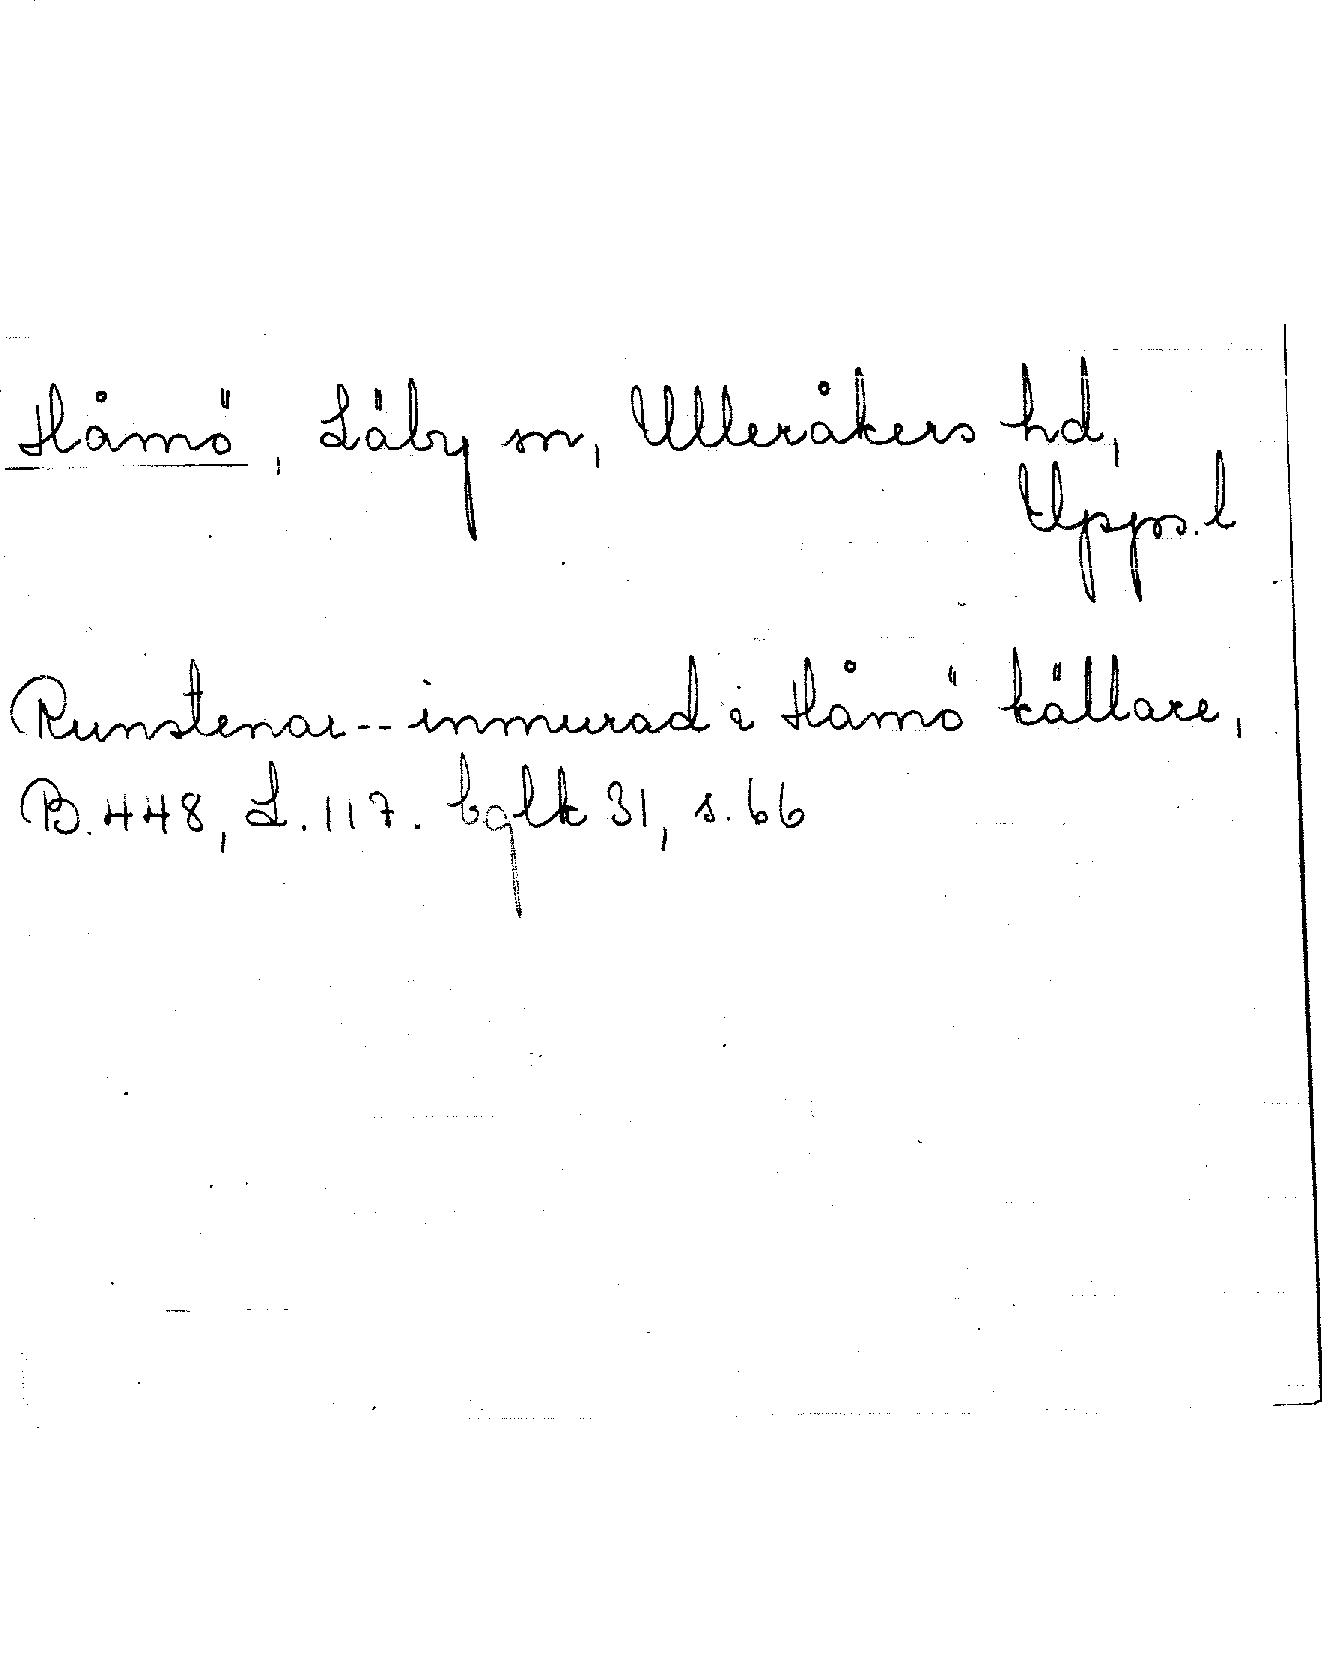 Håmö, Läby sn, Ulleråkers hd,
Upps. l
Runstenar -- inmurad i Håmö källare,
B. 448, L. 117. bglk 31, s. 66